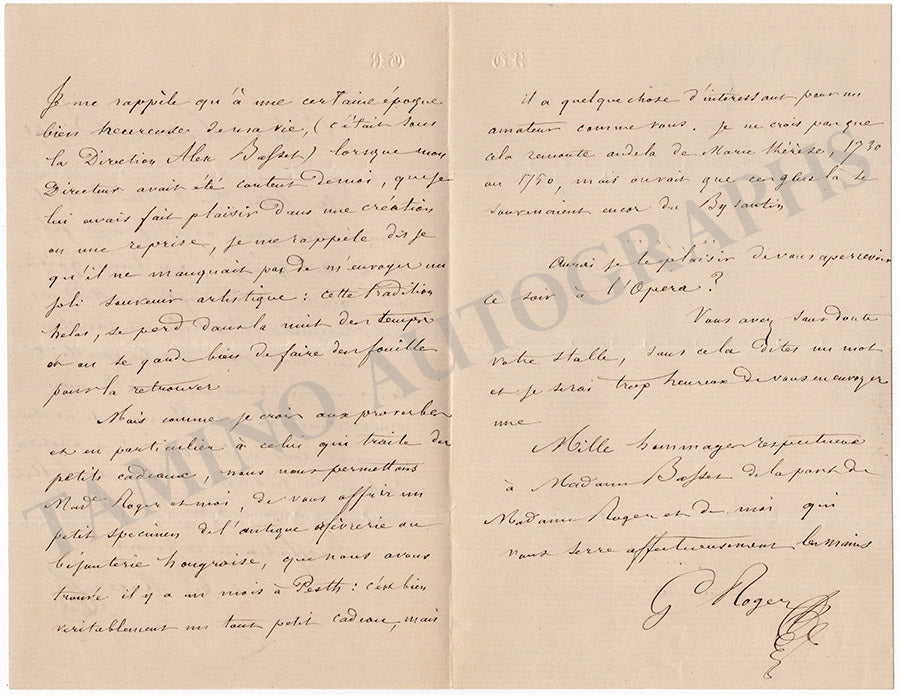 Je me rappèle qu'à une certaine époque
bien heureuse de ma vie, (c'était sous
la Direction Alex Basset) lorsque mon
Directeur avait été content de moi, que je
lui avais fait plaisir dans une création
ou une reprise, je me rappèle dis je
qu'il ne manquait pas de m'envoyer un
joli souvenir artistique : cette tradition
helas, se perd dans la nuit des temps
et on se garde bien de faire des fouille
pour la retrouver
Mais comme je crois aux proverbes
et en particulier à celui qui traite des
petits cadeaux, nous nous permettons
Made Roger et moi, de vous offrir un
petit specimen de l'antique orfevrerie ou
bijouterie hongroise, que nous avons
trouvé il y a un mois à Pesth : c'est bien
veritablement un tout petit cadeau, mais
G R
il a quelque chose d'intéressant pour un
amateur comme vous. Je ne crois pas que
cela remonte au dela de Marie thérèse 1730
ou 1750, mais on voit que ces gens là se
souvenaient encor du Bysantin
Aurai je le plaisir de vous apercevoir
ce soir à l'Opera ?
Vous avez sans doute
votre stalle, sans cela dites un mot
et je serai trop heureux de vous en envoyer
une
Mille hommages respectueux
à Madame Basset de la part de
Madame Roger et de moi qui
vous serre affectueusement les mains
G Roger
TAMINO AUTOGRAPHS